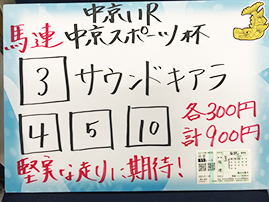 中京11R
馬連 中京スポーツ杯
3 サウンドキアラ
4 5 10 各300円
計900円
堅実な走りに期待!